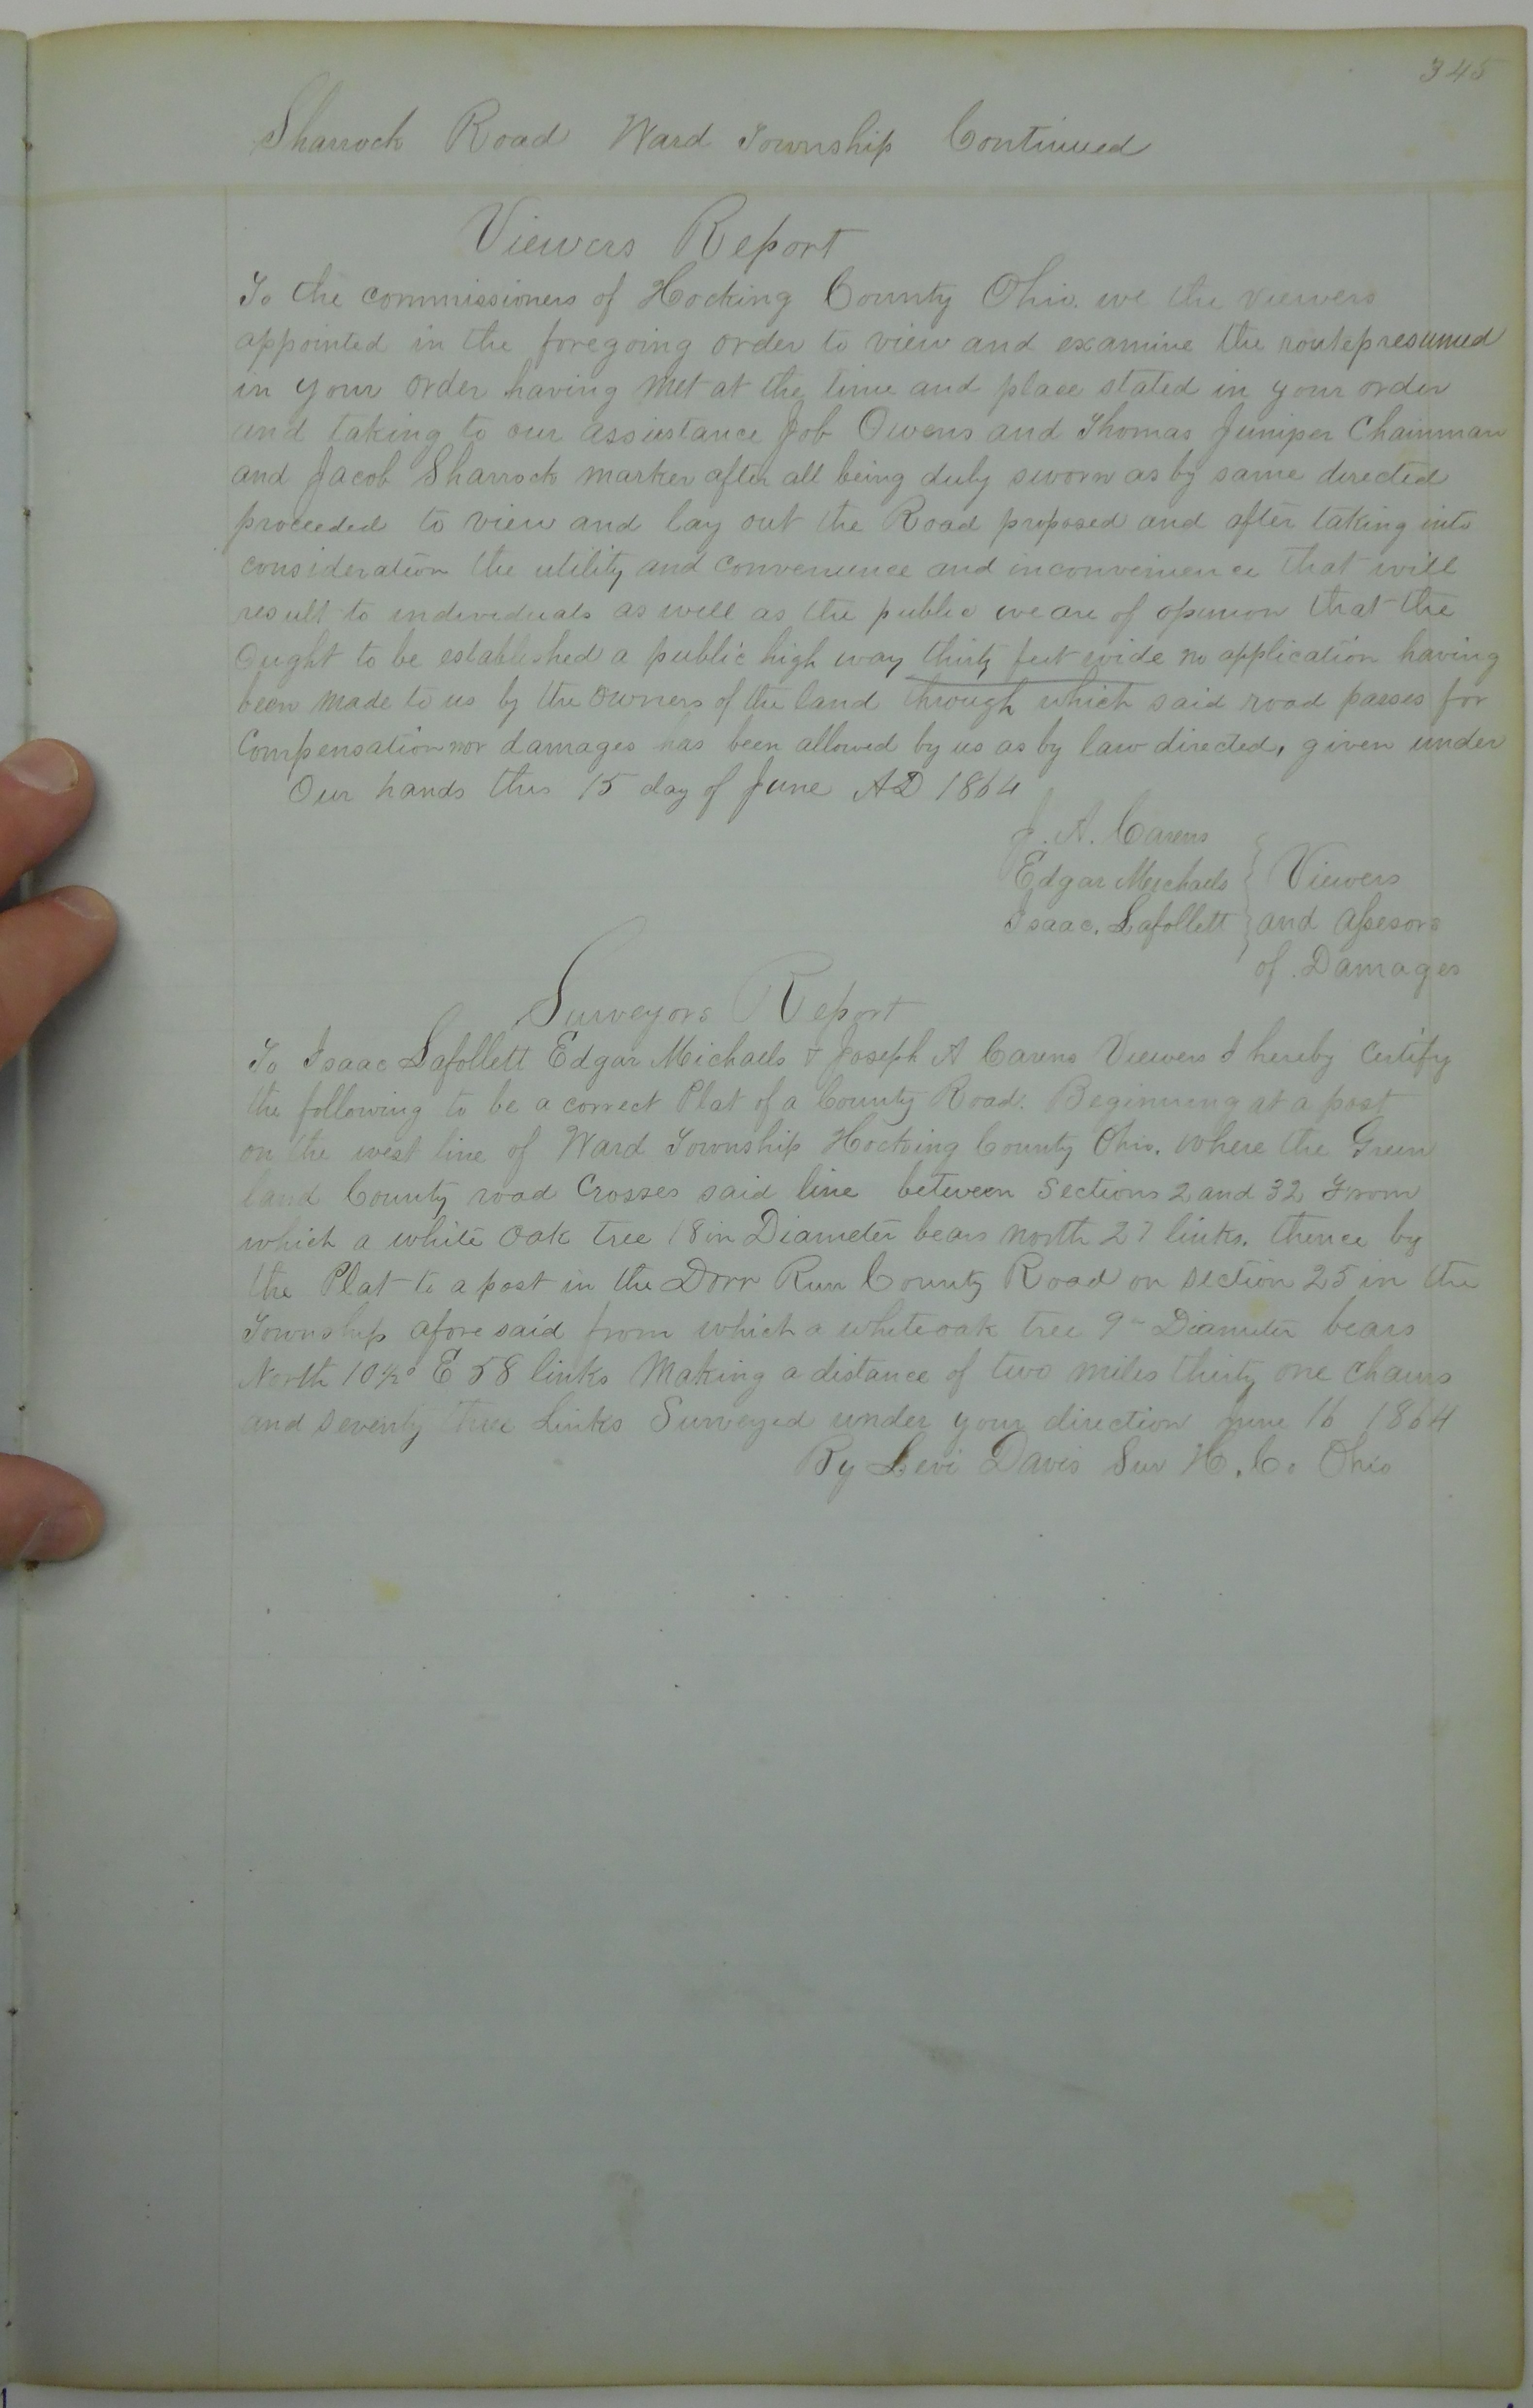 345
Sharrock Road Ward Township Continued
Viewers Report
To the commissioners of Hocking County Ohio. we the viewers
appointed in the foregoing order to view and examine the route presumed
in your order having met at the time and place stated in your order
and taking to our assistance Job Owens and Thomas Juniper Chainman
and Jacob Sharrock marker after all being duly sworn as by same directed
proceeded to view and lay out the Road proposed and after taking into
consideration the utility and convenience and inconvenience that will
result to individuals as well as the public we are of opinion that the
Ought to be established a public high way thirty feet wide no application having
been made to us by the owners of the land through which said road passes for
Compensation nor damages has been allowed by us as by law directed, given under
Our hands this 15 day of June AD 1864
J. A. Carens
Edgar Meichaels Viewers
Isaac. Lafollett and assesors
of Damages
Surveyors Report
To Isaac Lafollett Edgar Michaels & Joseph A Carens Viewers I hereby certify
the following to be a correct Plat of a County Road. Beginning at a post
on the west line of Ward Township Hocking County Ohio. where the Green
land County road Crosses said line between Sections 2 and 32 From
which a white oak tree 18 in Diameter bears north 27 links. thence by
the Plat to a post in the Dorr Run County Road on section 25 in the
Township afore said from which a white oak tree 9 in Diameter bears
North 10½° E 58 links Making a distance of two miles thirty one chains
and seventy three Links Surveyed under your direction June 16 1864
By Levi Davis Sur H. Co Ohio